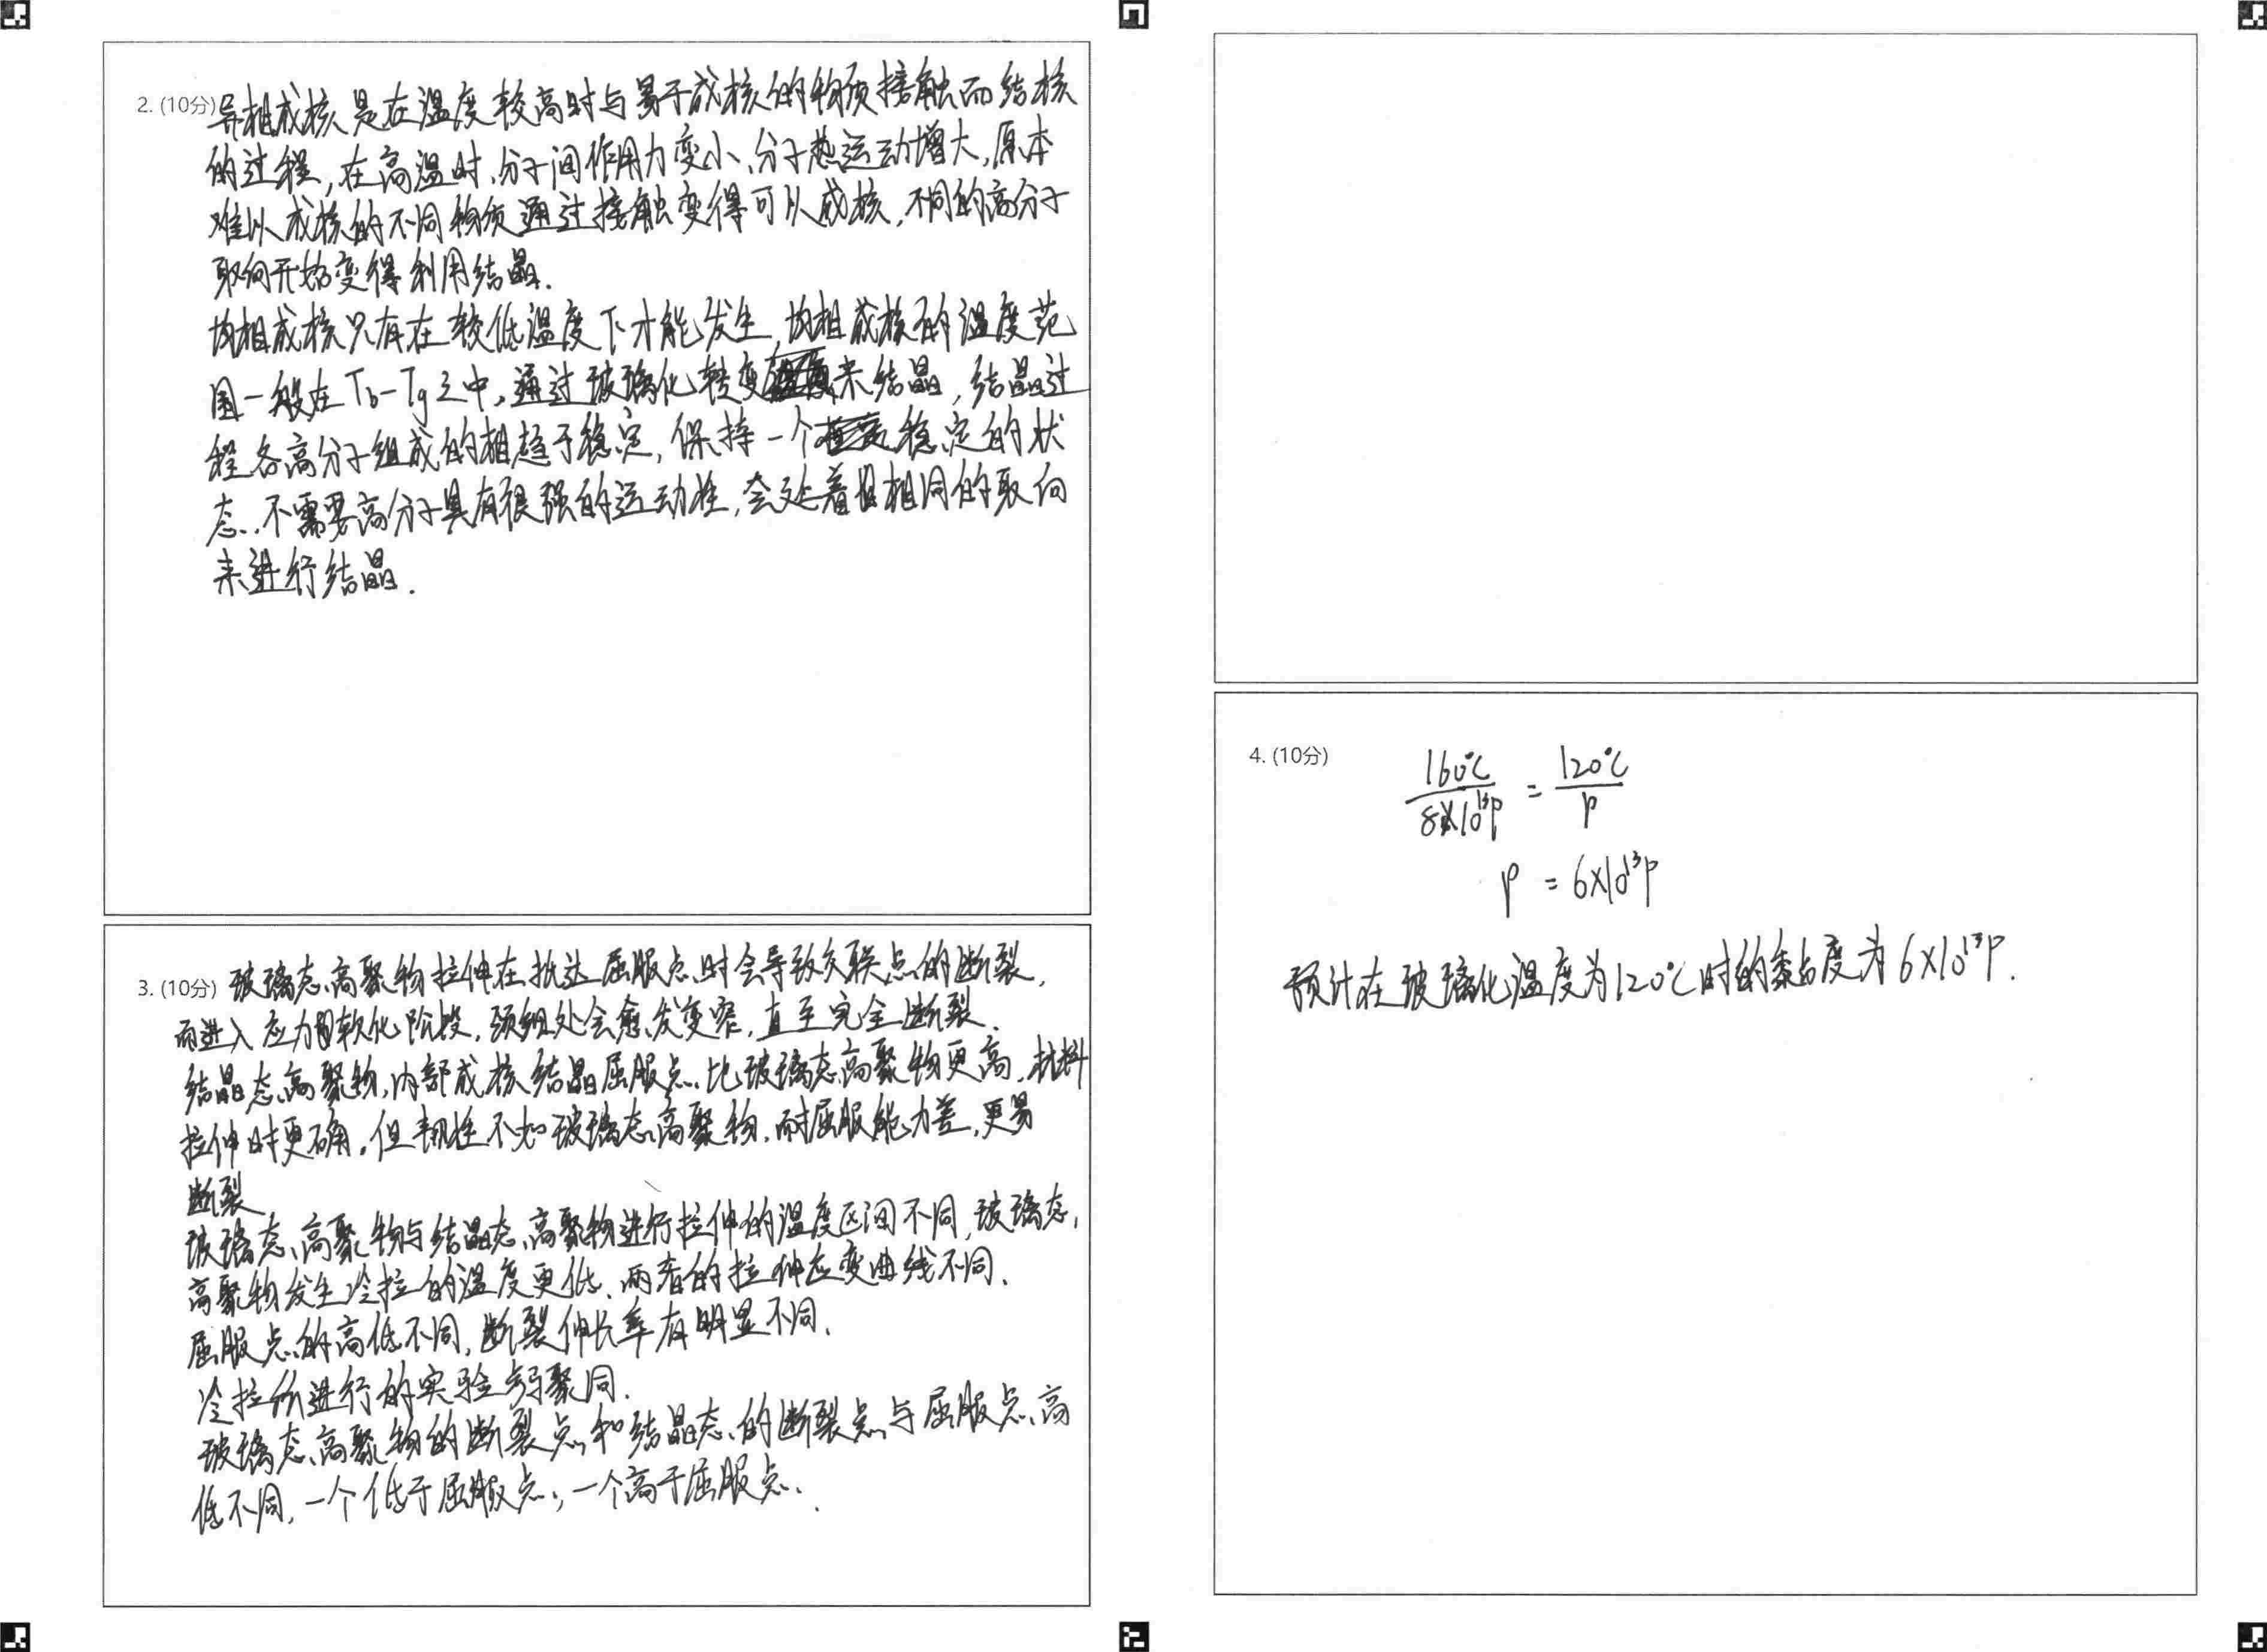 2. (10分) 异相成核是在温度较高时与易于成核的物质接触而结核
的过程,在高温时,分子间作用力变小、分子热运动增大,原本
难以成核的不同物质通过接触变得可以成核,不同的高分子
取向开始变得利用结晶.
均相成核只有在较低温度下才能发生,均相成核的温度范
围一般在Tb-Tg之中,通过玻璃化转变来结晶,结晶过
程各高分子组成的相趋于稳定,保持一个稳定的状
态.不需要高分子具有很强的运动性,会延着相同的取向
来进行结晶.
3. (10分) 玻璃态高聚物拉伸在抵达屈服点时会导致交联点的断裂,
而进入应力软化阶段,颈细处会愈发变窄,直至完全断裂.
结晶态高聚物,内部成核结晶屈服点比玻璃态高聚物更高,材料
拉伸时更硬,但韧性不如玻璃态高聚物,耐屈服能力差,更易
断裂
玻璃态高聚物与结晶态高聚物进行拉伸的温度区间不同,玻璃态
高聚物发生冷拉的温度更低,两者的拉伸应变曲线不同、
屈服点的高低不同,断裂伸长率有明显不同.
冷拉所进行的实验
玻璃态高聚物的断裂点和结晶态的断裂点与屈服点高
低不同,一个低于屈服点,一个高于屈服点.
4. (10分)
160℃/8×10¹³P = 120℃/P
P = 6×10¹³P
预计在玻璃化温度为120℃时的黏度为6×10¹³P.